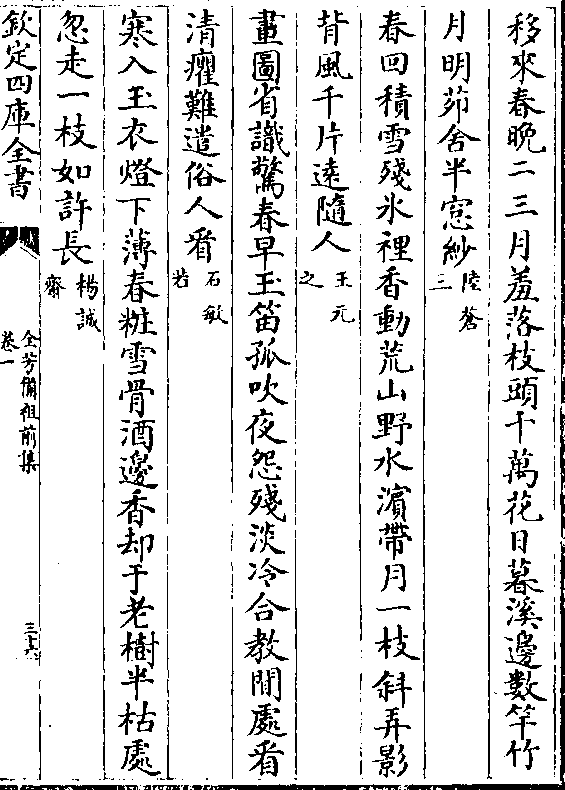 移來春晩二三月羞落枝頭千萬花日暮溪邊數竿竹
月明茆舍半窓紗陸蒼三
春回積雪殘氷裡香動荒山野水濵帶月一枝斜弄影
背風千片遠隨人王元之
畫圖省識驚春早玉笛孤吹夜怨殘淡冷合教閒處看
清癯難遣俗人看石敏若
寒入玉衣燈下薄春粧雪骨酒邊香却于老樹半枯處
忽走一枝如許長楊誠齋
欽定四庫全書
全芳備祖前集
卷一
三十六